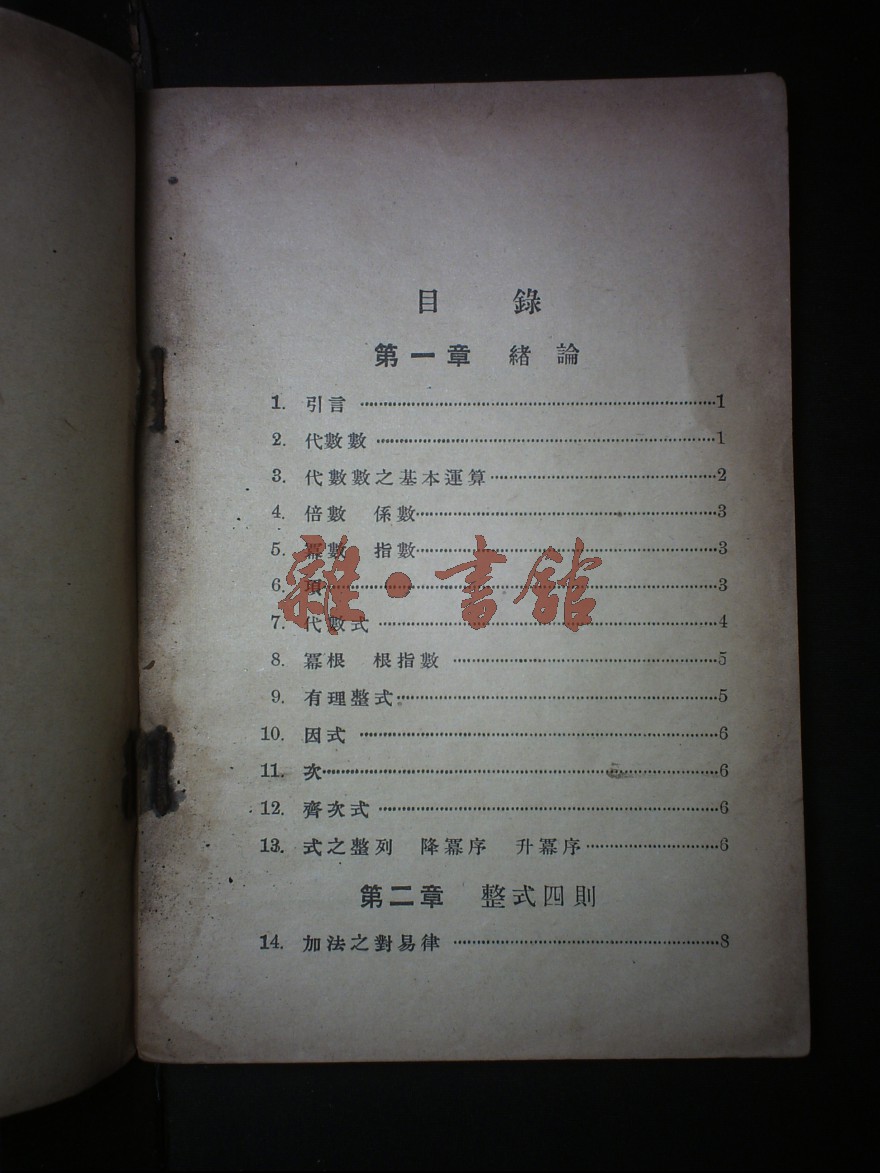 目 錄
第一章 緒論
1. 引言 1
2. 代數數 1
3. 代數數之基本運算 2
4. 倍數 係數 3
5. 冪數 指數 3
6. 項 3
雜·書館
7. 代數式 4
8. 冪根 根指數 5
9. 有理整式 5
10. 因式 6
11. 次 6
12. 齊次式 6
13. 式之整列 降冪序 升冪序 6
第二章 整式四則
14. 加法之對易律 8